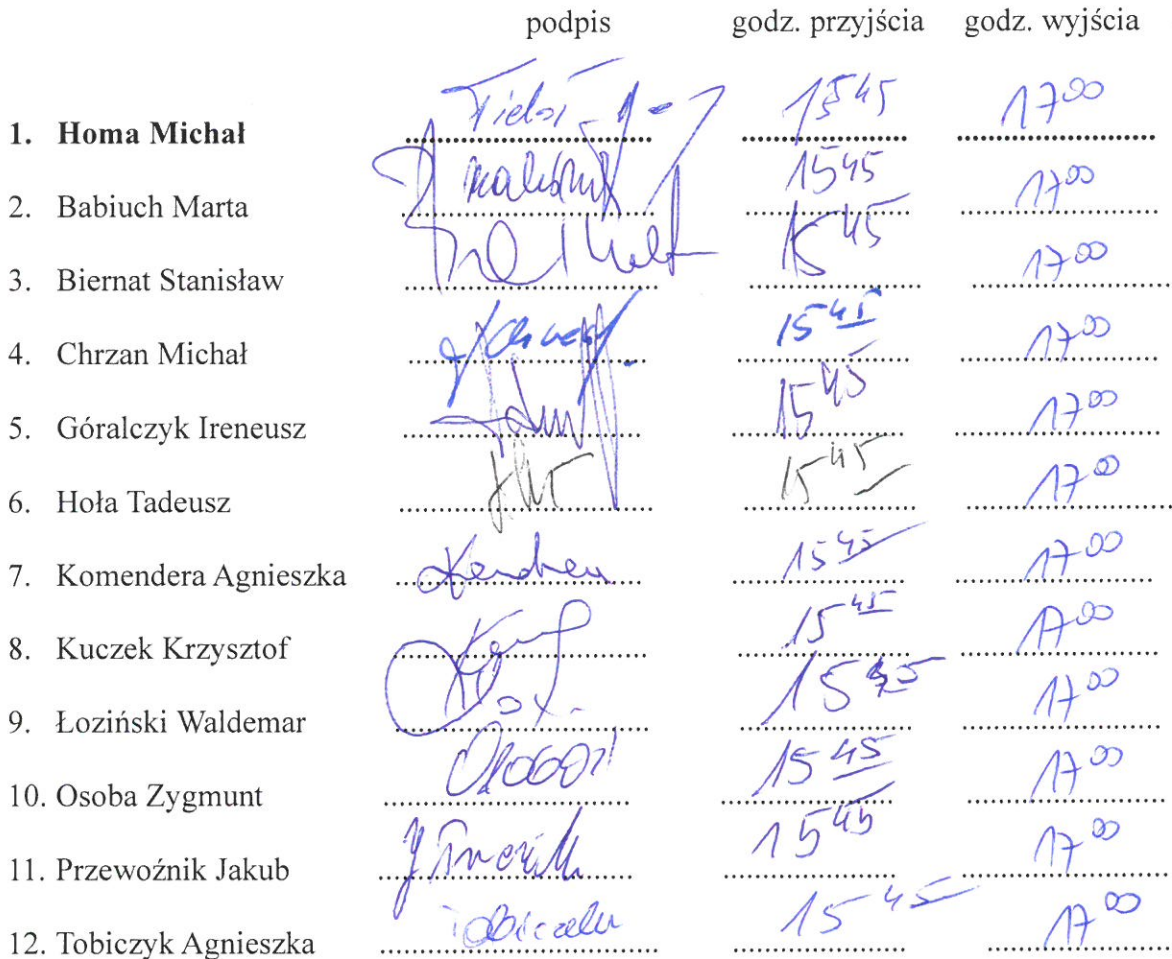 podpis godz. przyjścia godz. wyjścia
1. Homa Michał 15 45 17 00
2. Babiuch Marta 15 45 17 00
3. Biernat Stanisław 15 45 17 00
4. Chrzan Michał 15 45 17 00
5. Góralczyk Ireneusz 15 45 17 00
6. Hoła Tadeusz 15 45 17 00
7. Komendera Agnieszka 15 45 17 00
8. Kuczek Krzysztof 15 45 17 00
9. Łoziński Waldemar 15 45 17 00
10. Osoba Zygmunt 15 45 17 00
11. Przewoźnik Jakub 15 45 17 00
12. Tobiczyk Agnieszka 15 45 17 00